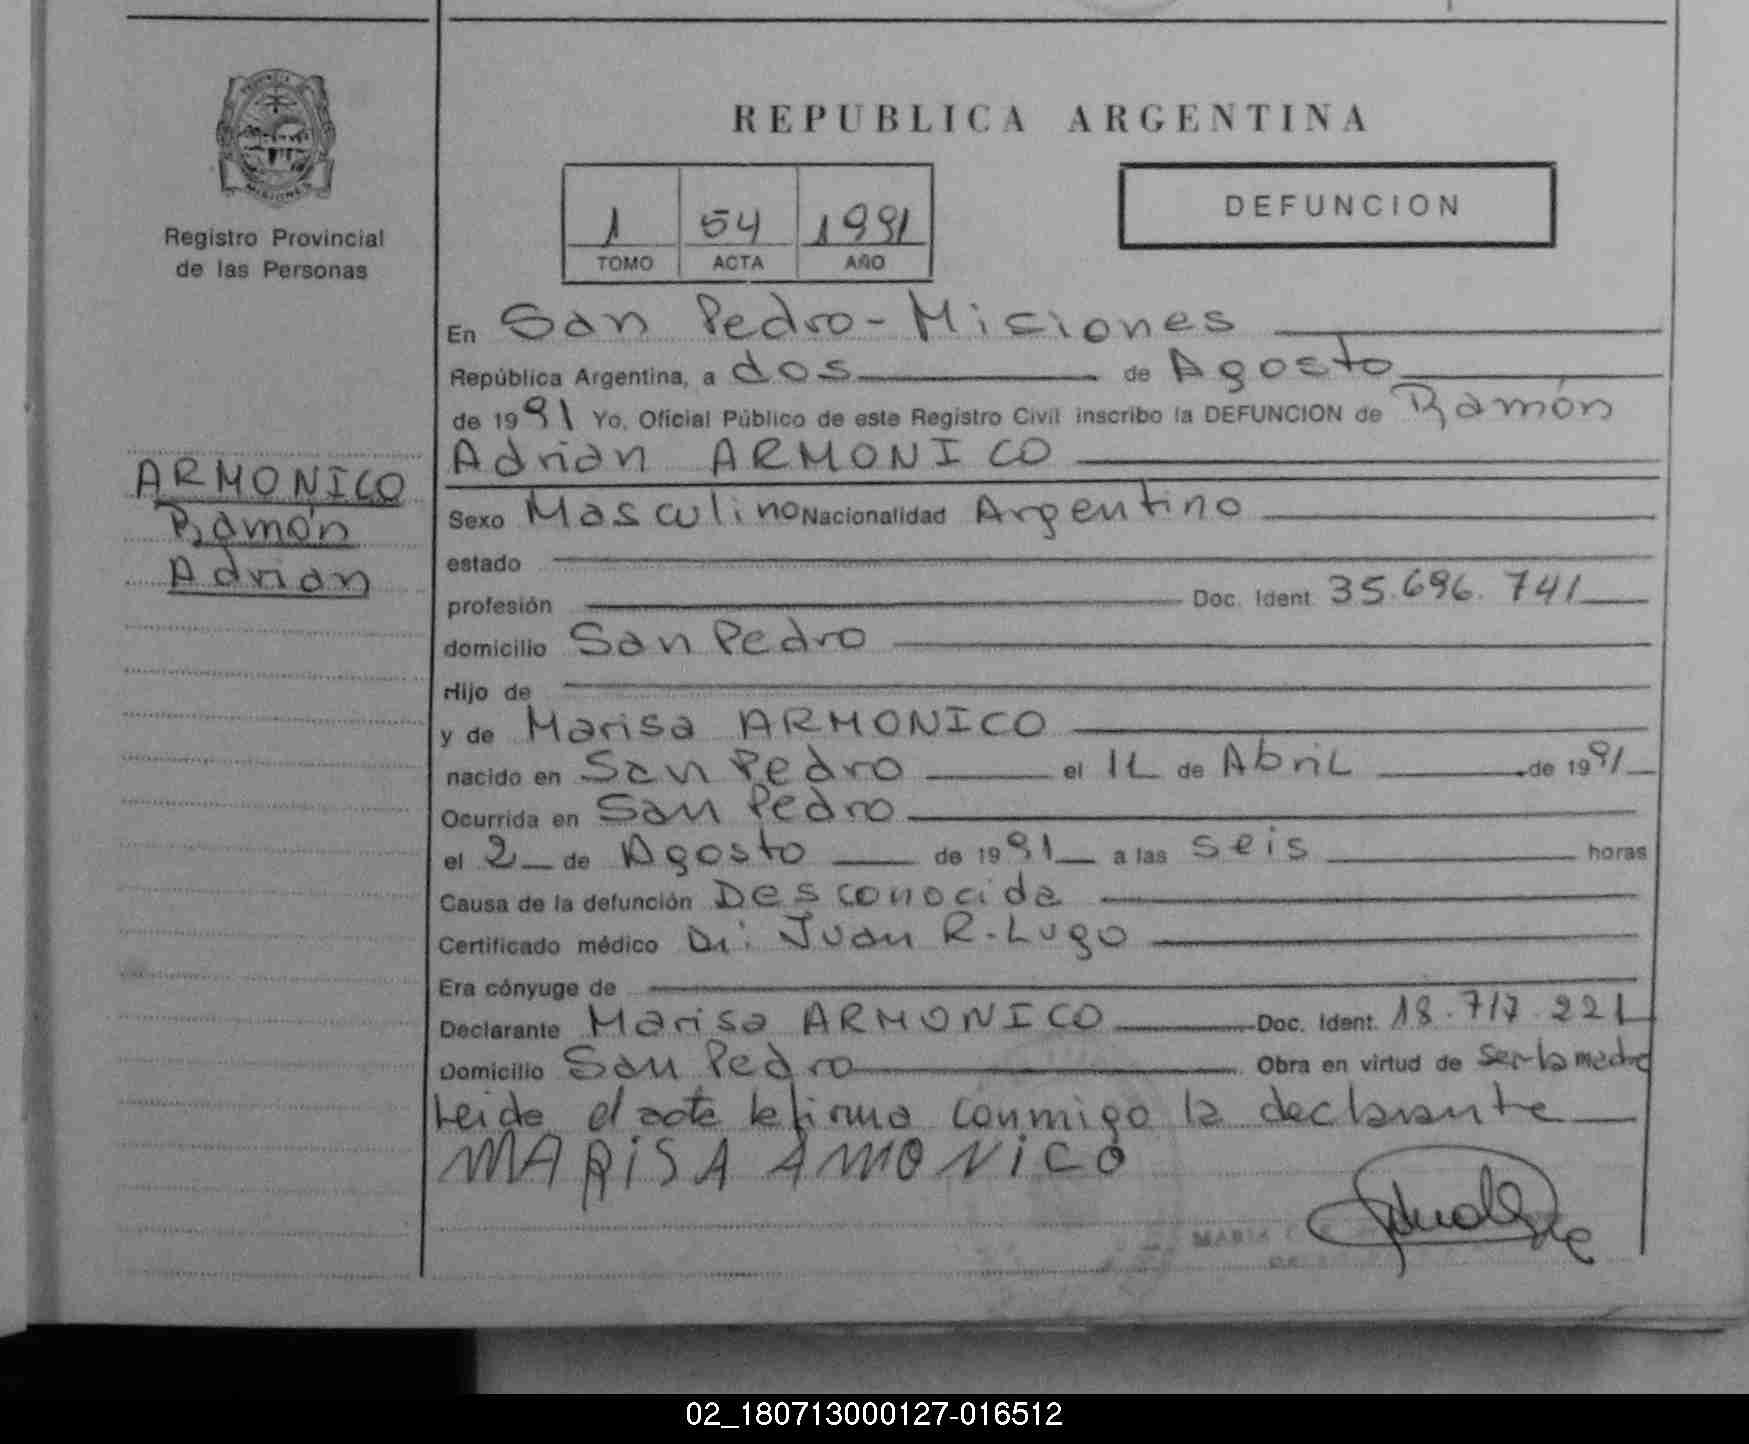 MISIONES
Registro Provincial
de las Personas
REPUBLICA ARGENTINA
1 54 1991
TOMO ACTA AÑO
DEFUNCION
En San Pedro - Misiones
República Argentina, a dos de Agosto
de 1991 Yo, Oficial Público de este Registro Civil inscribo la DEFUNCION de Ramón
Adrian ARMONICO
ARMONICO
Ramón
Adrian
Sexo Masculino Nacionalidad Argentino
estado
profesión Doc. Ident. 35.696.741
domicilio San Pedro
Hijo de
y de Marisa ARMONICO
nacido en San Pedro el 11 de Abril de 1991
Ocurrida en San Pedro
el 2 de Agosto de 1991 a las seis horas
Causa de la defunción Desconocida
Certificado médico Dr: Juan R. Lugo
Era cónyuge de
Declarante Marisa ARMONICO Doc. Ident. 18.717.221
Domicilio San Pedro Obra en virtud de ser la madre
Leida el acta la firma conmigo la declarante
MARiSA AMONiCO
MARIA
02_180713000127-016512